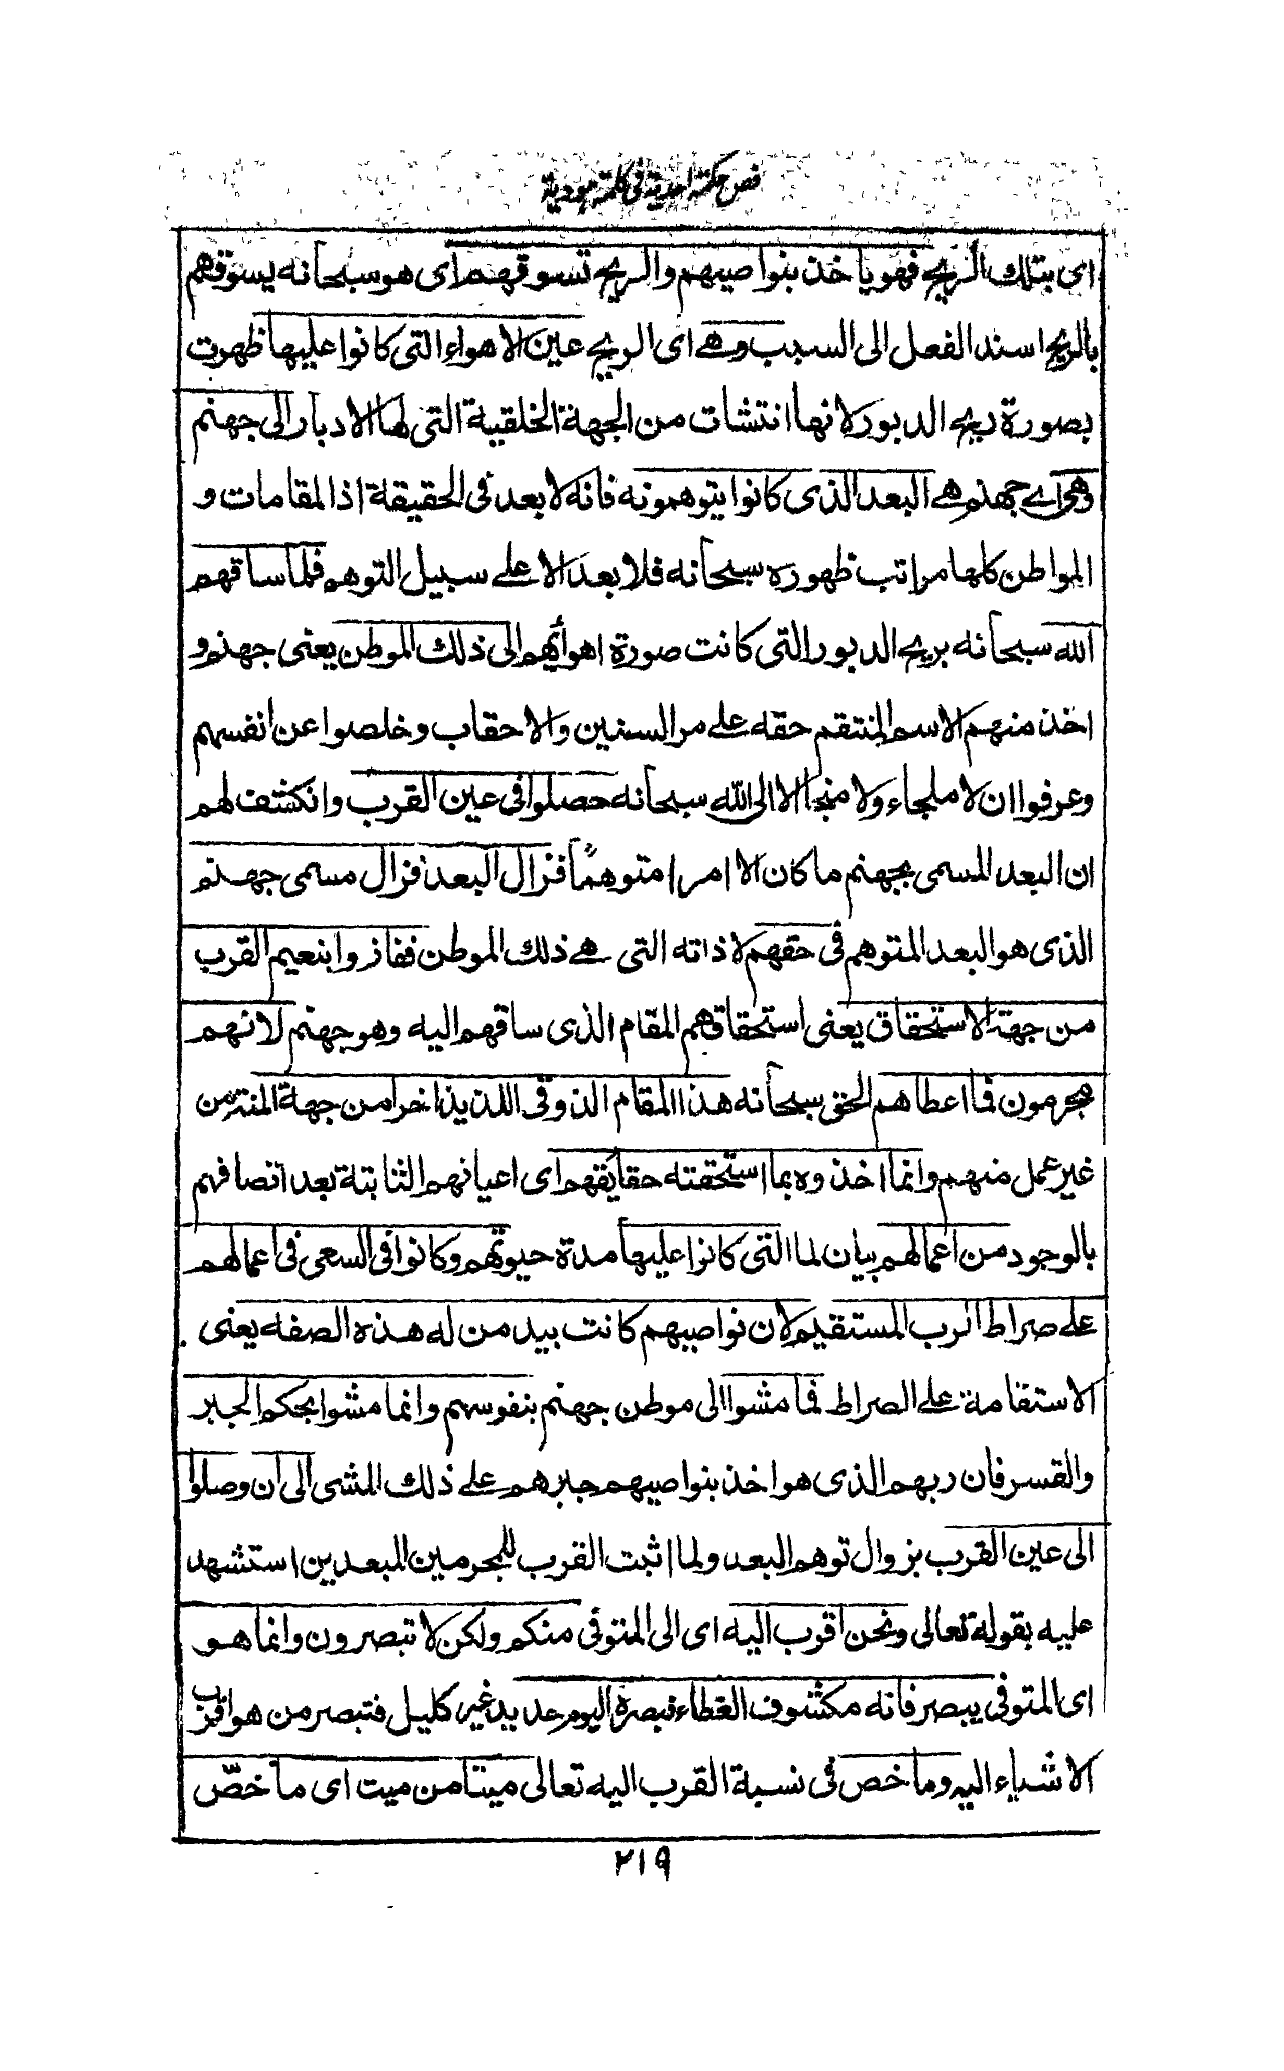 فص حكمة احدية فى كلمة هودية
اى بتلك الريح فهو ياخذ بنواصيهم والريح تسوقهم اى هو سبحانه يسوقهم
بالريح اسند الفعل الى السبب وهے اى الريح عين الاهواء التى كانوا عليها ظهرت
بصورة ريح الدبور لانها انتشات من الجهة الخلقية التى لها الادبار الى جهنم
وهى اے جهنم هے البعد الذى كانوا يتوهمونه فانه لا بعد فى الحقيقة اذ المقامات و
المواطن كلها مراتب ظهوره سبحانه فلا بعد الا علے سبيل التوهم فلما ساقهم
الله سبحانه بريح الدبور التى كانت صورة اهوائهم الى ذلك الموطن يعنى جهنم و
اخذ منهم الاسم المنتقم حقه علے مر السنين والاحقاب وخلصوا عن انفسهم
وعرفوا ان لا ملجاء ولا منجا الا الى الله سبحانه حصلوا فى عين القرب وانكشف لهم
ان البعد المسمى بجهنم ما كان الا امرا متوهماً فزال البعد فزال مسمى جهنم
الذى هو البعد المتوهم فى حقهم لا ذاته التى هے ذلك الموطن ففازوا بنعيم القرب
من جهة الاستحقاق يعنى استحقاقهم المقام الذى ساقهم اليه وهو جهنم لانهم
مجرمون فما اعطاهم الحق سبحانه هذا المقام الذوقى اللذيذ اخرا من جهة المنة من
غير عمل منهم وانما اخذوه بما استحقته حقايقهم اى اعيانهم الثابتة بعد اتصافهم
بالوجود من اعمالهم بيان لما التى كانوا عليها مدة حيوتهم وكانوا فى السعى فى اعمالهم
علے صراط الرب المستقيم لان نواصيهم كانت بيد من له هذه الصفه يعنى
الاستقامة علے الصراط فما مشوا الى موطن جهنم بنفوسهم وانما مشوا بحكم الجبر
والقسر فان ربهم الذى هو اخذ بنواصيهم جبرهم علے ذلك المشى الى ان وصلوا
الى عين القرب بزوال توهم البعد ولما اثبت القرب للمجرمين المبعدين استشهد
عليه بقوله تعالى ونحن اقرب اليه اى الى المتوفى منكم ولكن لا تبصرون وانما هو
اى المتوفى يبصر فانه مكشوف الغطاء فبصره اليوم حديد غير كليل فتبصر من هو اقرب
الاشياء اليه وما خص فى نسبة القرب اليه تعالى ميتا من ميت اى ما خصّ
٢١٩